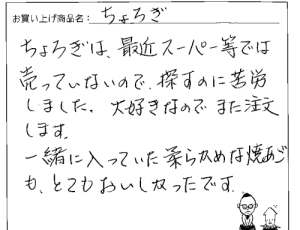 お買い上げ商品名：ちょろぎ
ちょろぎは、最近スーパー等では
売っていないので、探すのに苦労
しました。大好きなのでまた注文
します。
一緒に入っていた柔らかめな焼あご
も、とてもおいしかったです。